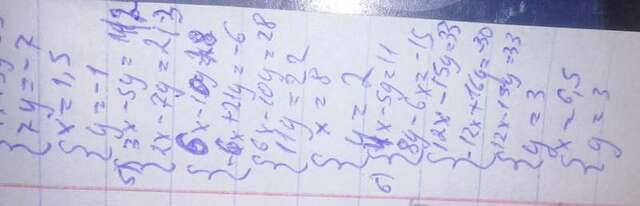 7y = -7
x = 1,5
y = -1
5) 3x - 5y = 14|2
2x - 7y = 2|-3
6x - 10y = 28
-6x + 21y = -6
6x - 10y = 28
11y = 22
x = 8
y = 2
6) 4x - 5y = 11
8y - 6x = -15
12x - 15y = 33
-12x + 16y = -30
12x - 15y = 33
y = 3
x = 6,5
y = 3